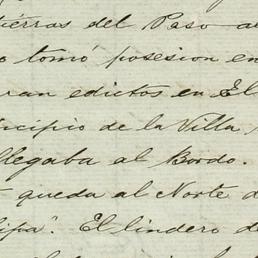 tierras del Paso al
tomó posesion en
ran edictos en El
ncipio de la Villa,
llegaba al Bordo.
queda al Norte d
ipa". El lindero de